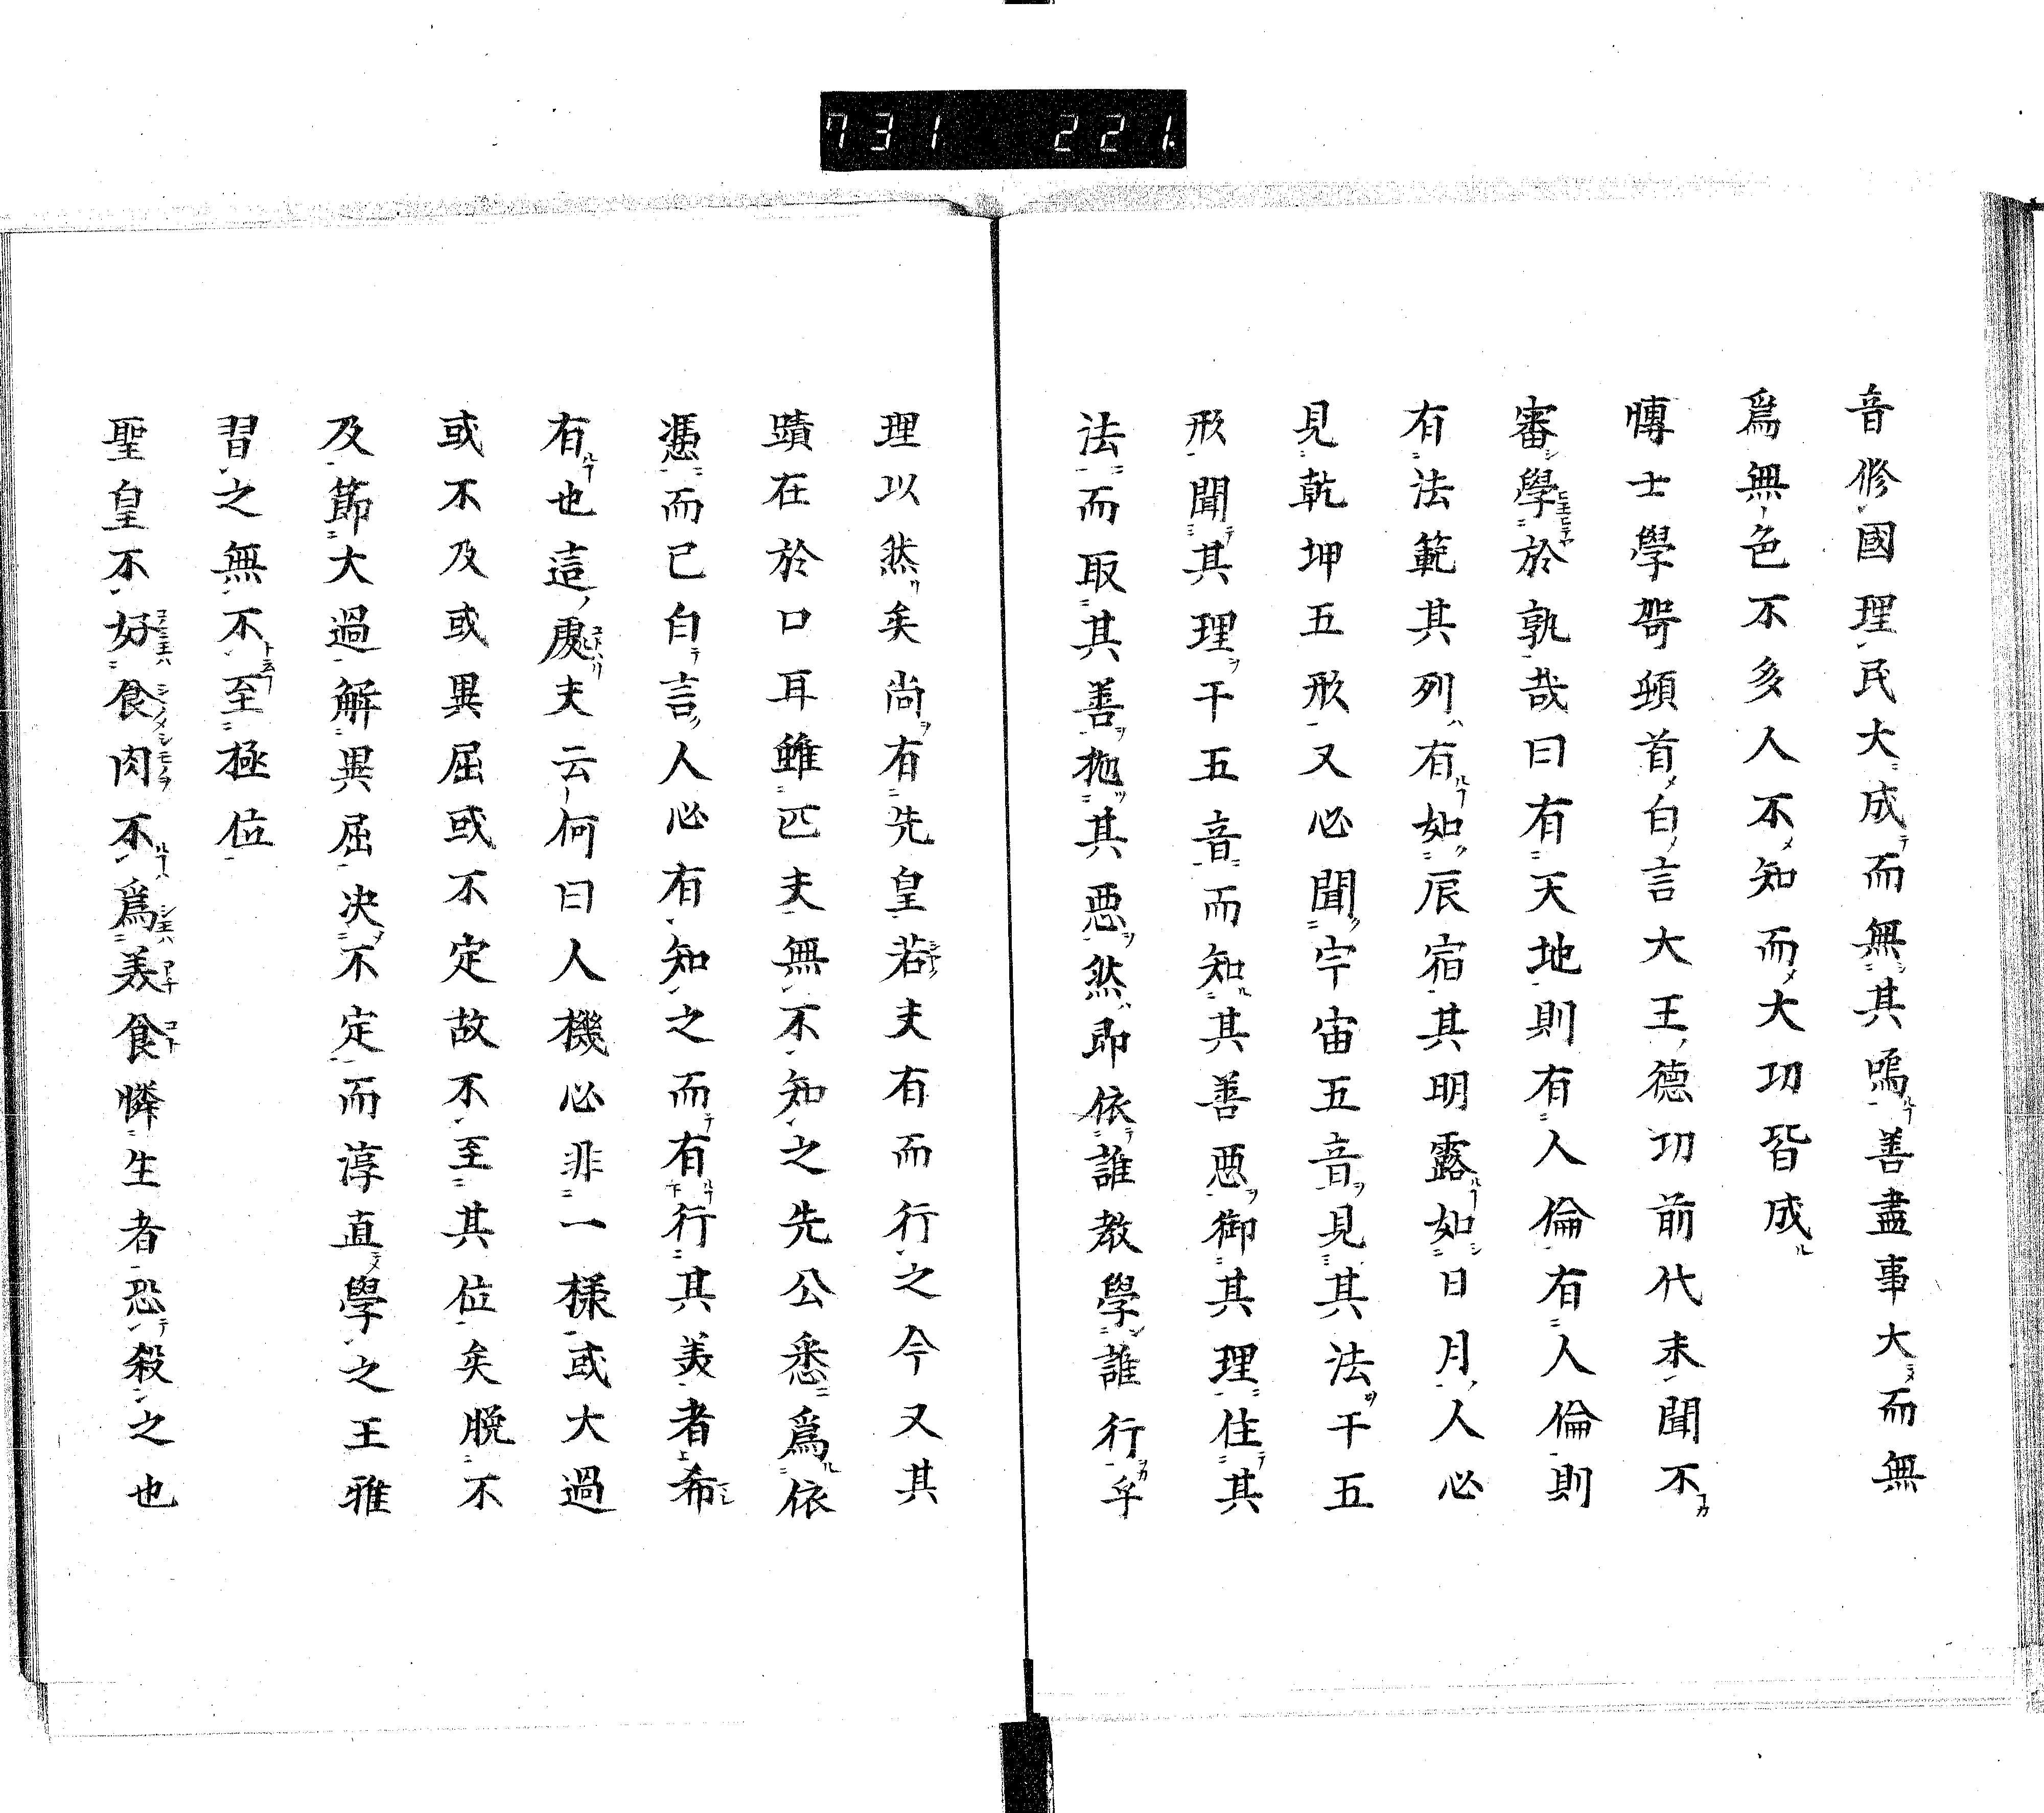 731 221.
音修國理民大成而無其鳴善盡事大而無
爲無色不多人不知而大功皆成
博士學哿頓首白言大王德功前代未聞不
審學於孰哉曰有天地則有人倫有人倫則
有法範其列有如辰宿其明露如日月人必
見乾坤五形又必聞宇宙五音見其法干五
形聞其理干五音而知其善惡御其理住其
法而取其善拋其惡然即依誰教學誰行乎
理以然矣尚有先皇若夫有而行之今又其
蹟在於口耳雖匹夫無不知之先公悉爲依
憑而已自言人必有知之而有行其美者希
有也這夫云何曰人機必非一樣或大過
或不及或異屈或不定故不至其位矣脫不
及節大過解異屈決不定而淳直學之王雅
習之無不至極位
聖皇不好食肉不爲美食憐生者恐殺之也